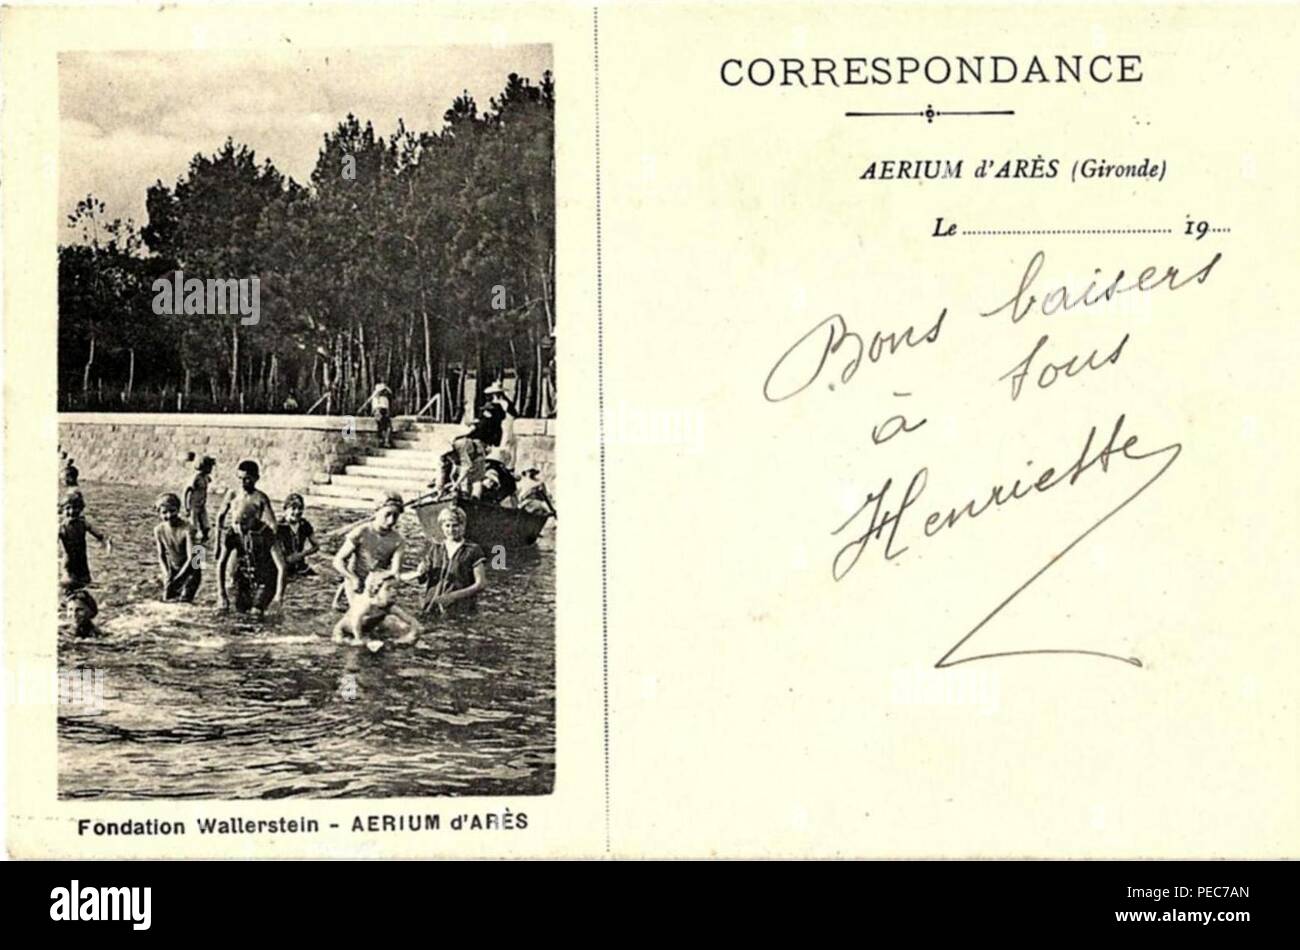 CORRESPONDANCE
AERIUM d'ARÈS (Gironde)
Le ........................................ 19....
Bons baisers
à tous
Henriette
Fondation Wallerstein - AERIUM d'ARÈS
alamy
a
a alamy stock photo
PEC7AN
www.alamy.com